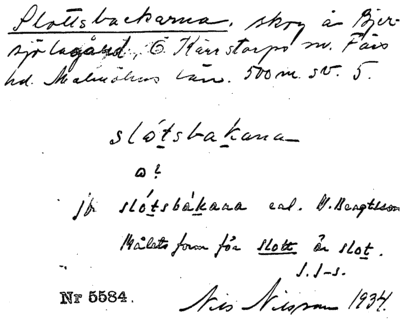 Slottsbackarna, skog å Bjer-
sjölagård, Ö. Kärrstorps sn. Färs
hd. Malmöhus län. 500 m. sv. 5.
slótsbakana
a?
jfr slótsbákana enl. B. Bengtsson
Målets form för slott är slot.
I. I-s.
Nr 5584. Nils Nilsson 1934.